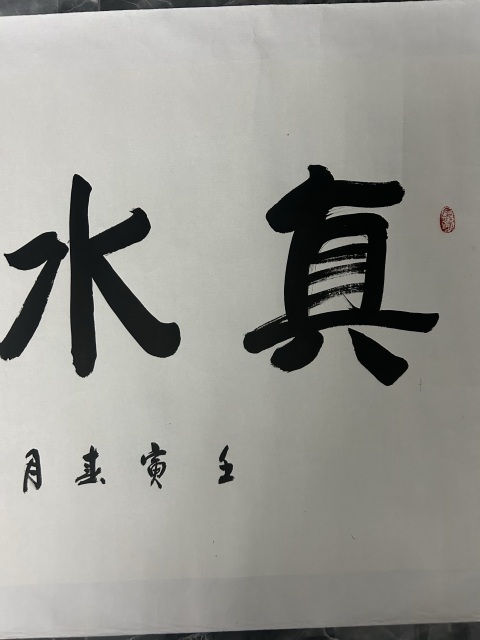 真水
壬寅春月